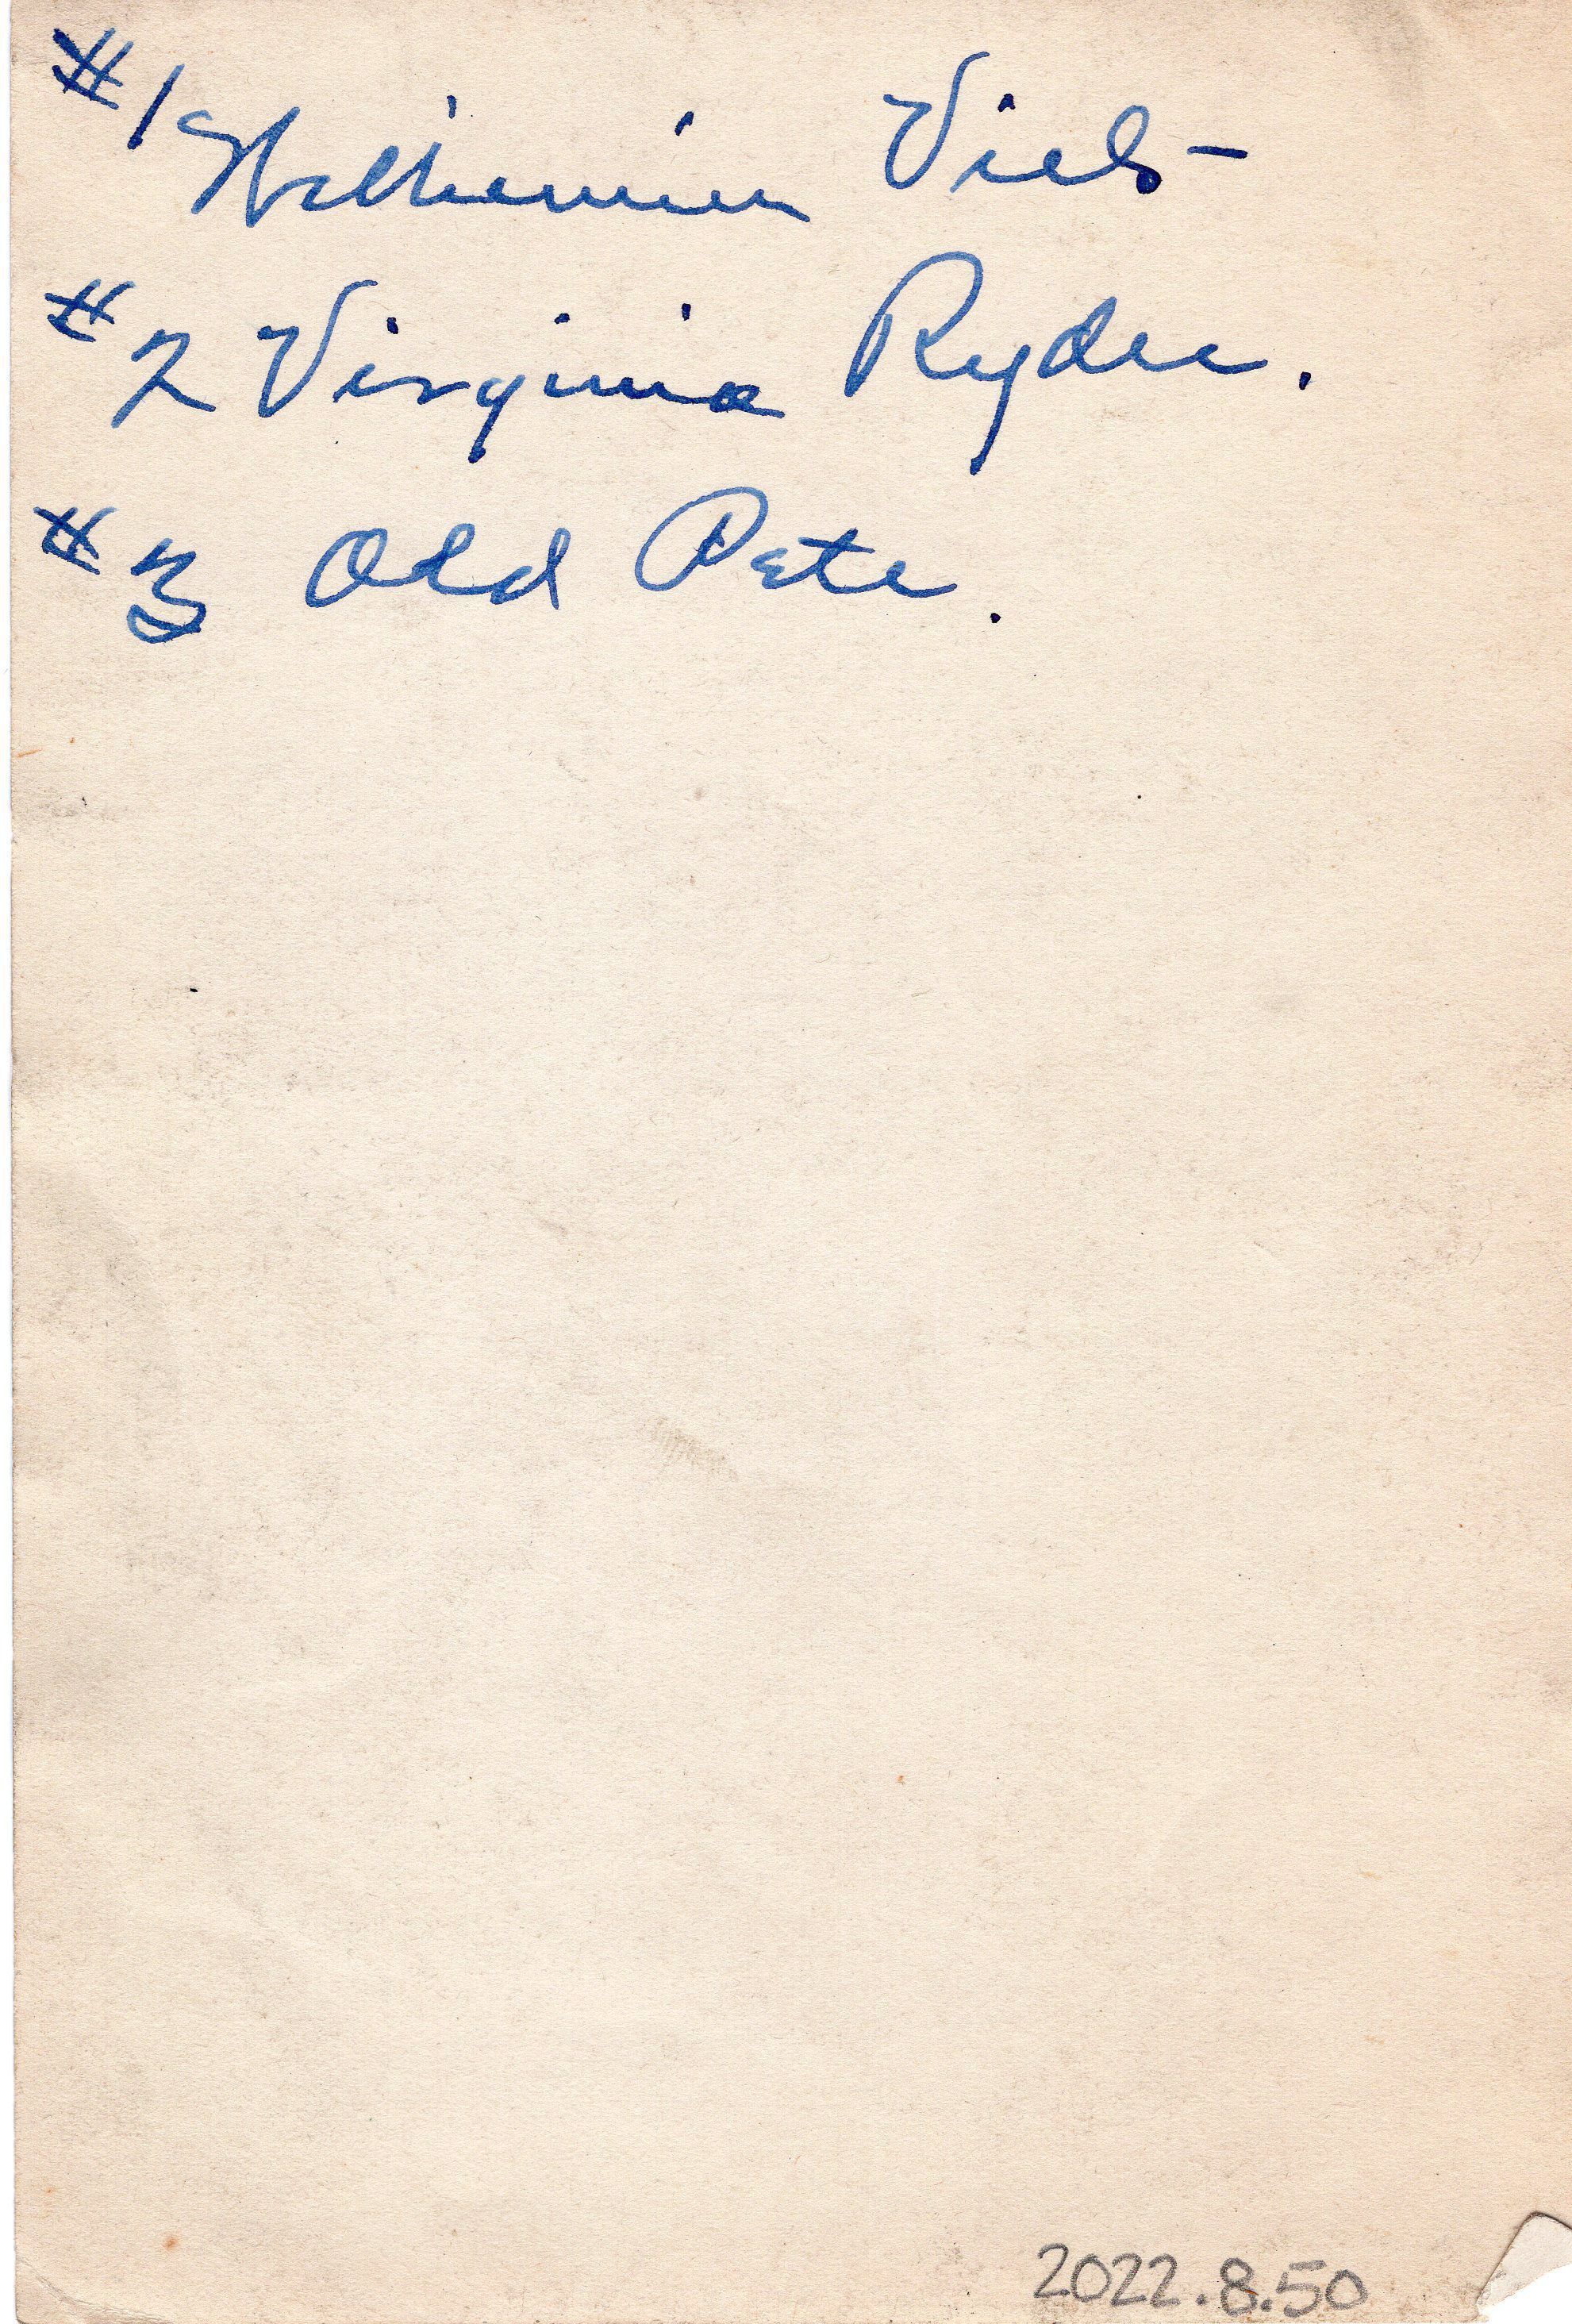 #1 Wilhemien Viels-
#2 Virginia Ryder.
#3 Old Pete.
2022.8.50